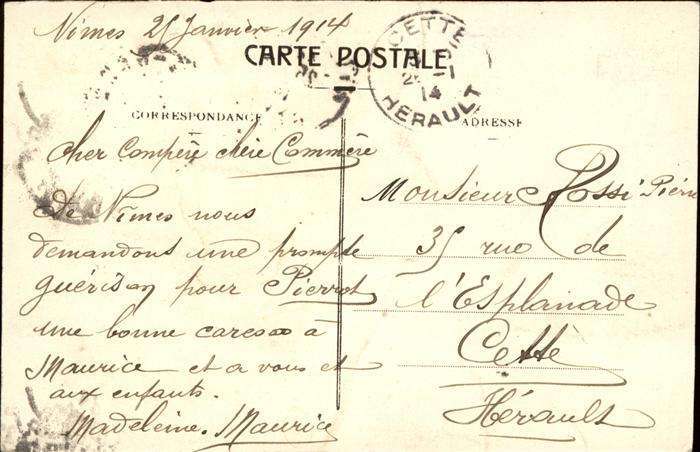 Nîmes 25 Janvier 1914
CARTE POSTALE
CETTE
25 -1
14
HERAULT
CORRESPONDANCE
ADRESSE
Cher Compère chère Commère
De Nîmes nous
demandons une prompte
guérison pour Pierrot
une bonne caresse à
Maurice et a vous et
aux enfants.
Madeleine. Maurice
Monsieur Rossi Pierre
35 rue de
l'Esplanade
Cette
Hérault